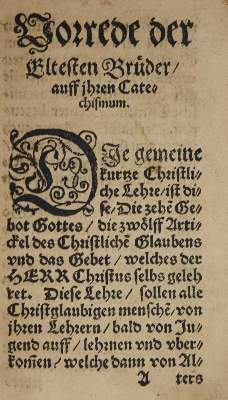 Vorrede der
Eltesten Brüder/
auff jhren Cate-
chismum.
DIe gemeine
kurtze Christli-
che Lehre/ ist di-
se/ Die zehẽ Ge-
bot Gottes/ die zwölff Arti-
ckel des Christlichẽ Glaubens
vnd das Gebet/ welches der
HERR Christus selbs geleh
ret. Diese Lehre/ sollen alle
Christglaubigen menschẽ/ von
jhren Lehrern/ bald von Ju-
gend auff/ lehrnen vnd vber-
kom̃en/ welche dann von Al-
A ters